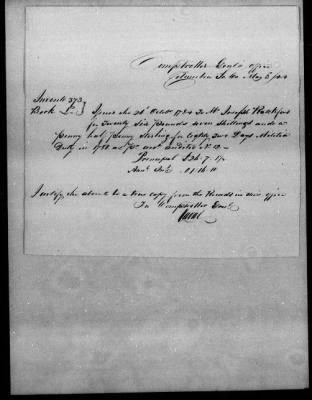 Comptroller Genls Office
Columbia So. Ca. May 5
Indent 373
Book L. } Issued the 26 Octobr 1784 To Mr Joseph
for Twenty Six Pounds Seven Shillings and a
Penny half Penny Sterling for Eighty Two Days Militia
Duty in 1780 as Pr. acct Audited No
Principal £26.7.1½
Annl Intt 1.16.11
I certify the above to be a true copy from the Records in this office
Comptroller Genl